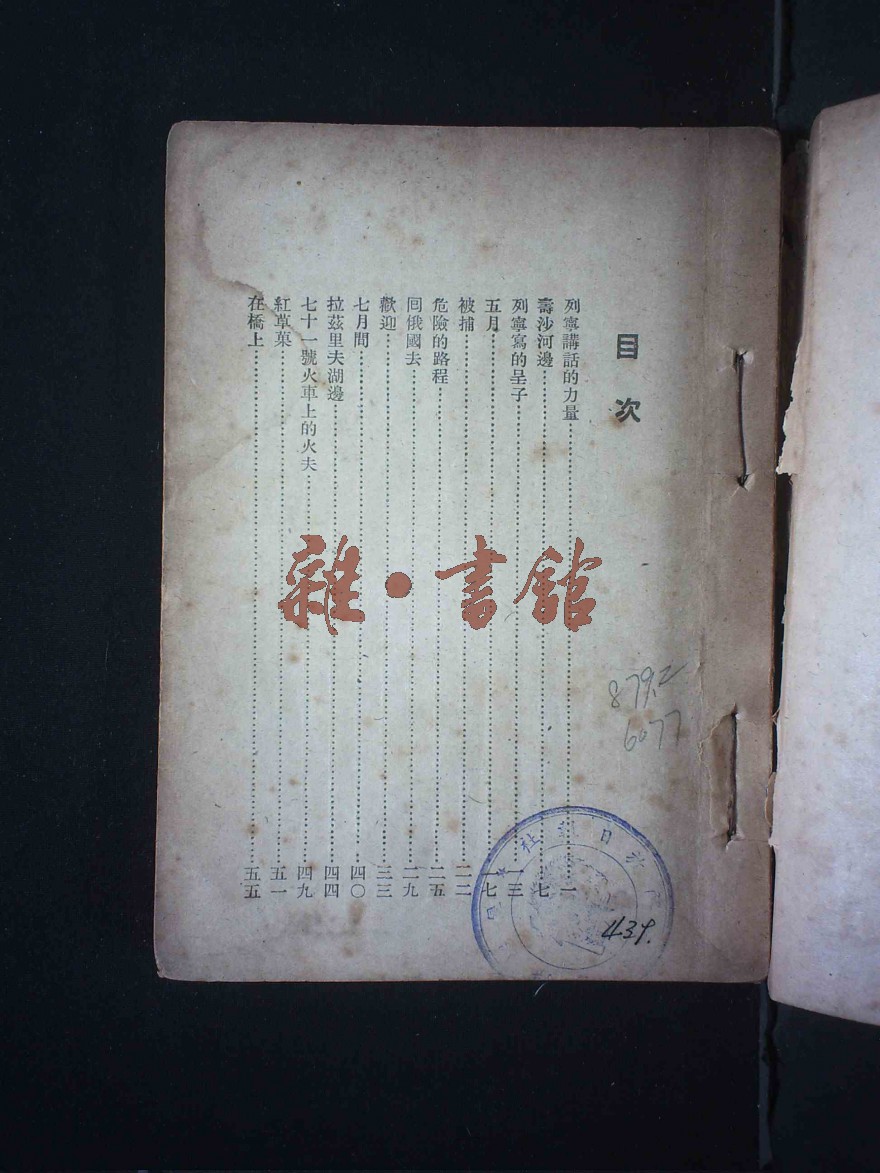 目次
列寧講話的力量……一
壽沙河邊……七
列寧寫的呈子……一三
五月……一七
被捕……二二
危險的路程……二五
囘俄國去……二九
歡迎……三三
七月間……四〇
拉茲里夫湖邊……四四
七十一號火車上的火夫……四九
紅草菓……五一
在橋上……五五
雜·書館
879.2
6077
日報社
439.